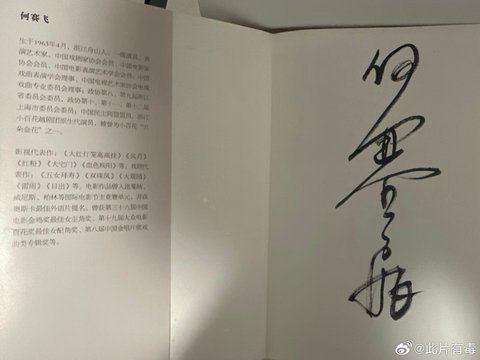 何赛飞
生于1963年4月，浙江舟山人，一级演员，表
演艺术家、中国戏剧家协会会员、中国电影家
协会会员、中国电影表演艺术学会会员、中国
戏曲表演学会理事，中国电视艺术家协会电视
戏曲专业委员会理事；政协第八、第九届浙江
省委员会委员、政协第十、第十一、第十二届
上海市委员会委员；中国民主同盟盟员，浙江
小百花越剧团原生代演员，被誉为小百花“五
朵金花”之一。
影视代表作：《大红灯笼高高挂》《风月》
《红粉》《大宅门》《血色残阳》等。戏剧代
表作：《五女拜寿》《双珠凤》《大观园》
《雷雨》《日出》等。电影作品曾入选戛纳、
威尼斯、柏林等国际电影节主竞赛单元，并获
奥斯卡最佳外语片提名。曾获第三十六届中国
电影金鸡奖最佳女主角奖、第十九届大众电影
百花奖最佳女配角奖、第八届中国金唱片奖戏
曲类专辑奖等。
何赛飞
@此片有毒